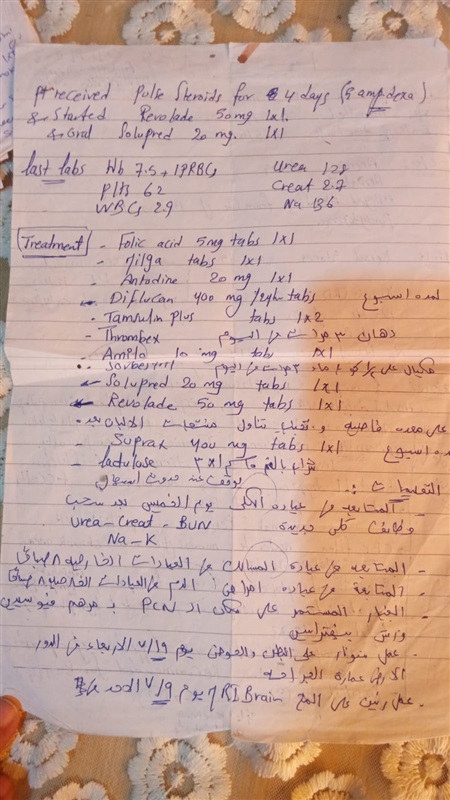 pt received Pulse Steroids for 4 days (5 amp dexa)
& Started Revolade 50mg 1x1.
& Oral Solupred 20 mg. 1x1
last labs Hb 7.5 + 1PRBCs Urea 128
Plts 62 Creat 2.7
WBCs 2.9 Na 136
Treatment - Folic acid 5mg tabs 1x1
- Milga tabs 1x1
- Antodine 20 mg 1x1
- Diflucan 400 mg /24hr tabs لمده اسبوع
- Tamsulin Plus tabs 1x2
- Thrombex دهان ٣ مرات في اليوم
- Amilo 10 mg tab 1x1
- Sorbesterit مكيال على ماء ٣ مرات في اليوم
- Solupred 20 mg tabs 1x1
- Revolade 50 mg tabs 1x1
على معده فاضيه و تجنب تناول منتجات الالبان بعد
- Suprax 400 mg tabs 1x1 لمده اسبوع
- lactulose شراب بالفم ٣x١
يوقف عند حدوث اسهال
التعليمات :
- المتابعه في عيادة الكلى يوم الخميس بعد سحب
وظائف كلى جديدة Urea - Creat - BUN
Na - K
- المتابعه في عيادة المسالك في العيادات الخارجيه ٨ صباحا
- المتابعة في عيادة امراض الدم في العيادات الخارجيه ٨ صباحا
- الغيار المستمر على مكان الـ PCN بـ مرهم فيوسيدين
- عمل سونار على البطن والحوض يوم ٧/١٩ الاربعاء في الدور
الارضي عمارة الجراحه
- عمل رنين على المخ MRI Brain يوم ٧/٩ الاحد